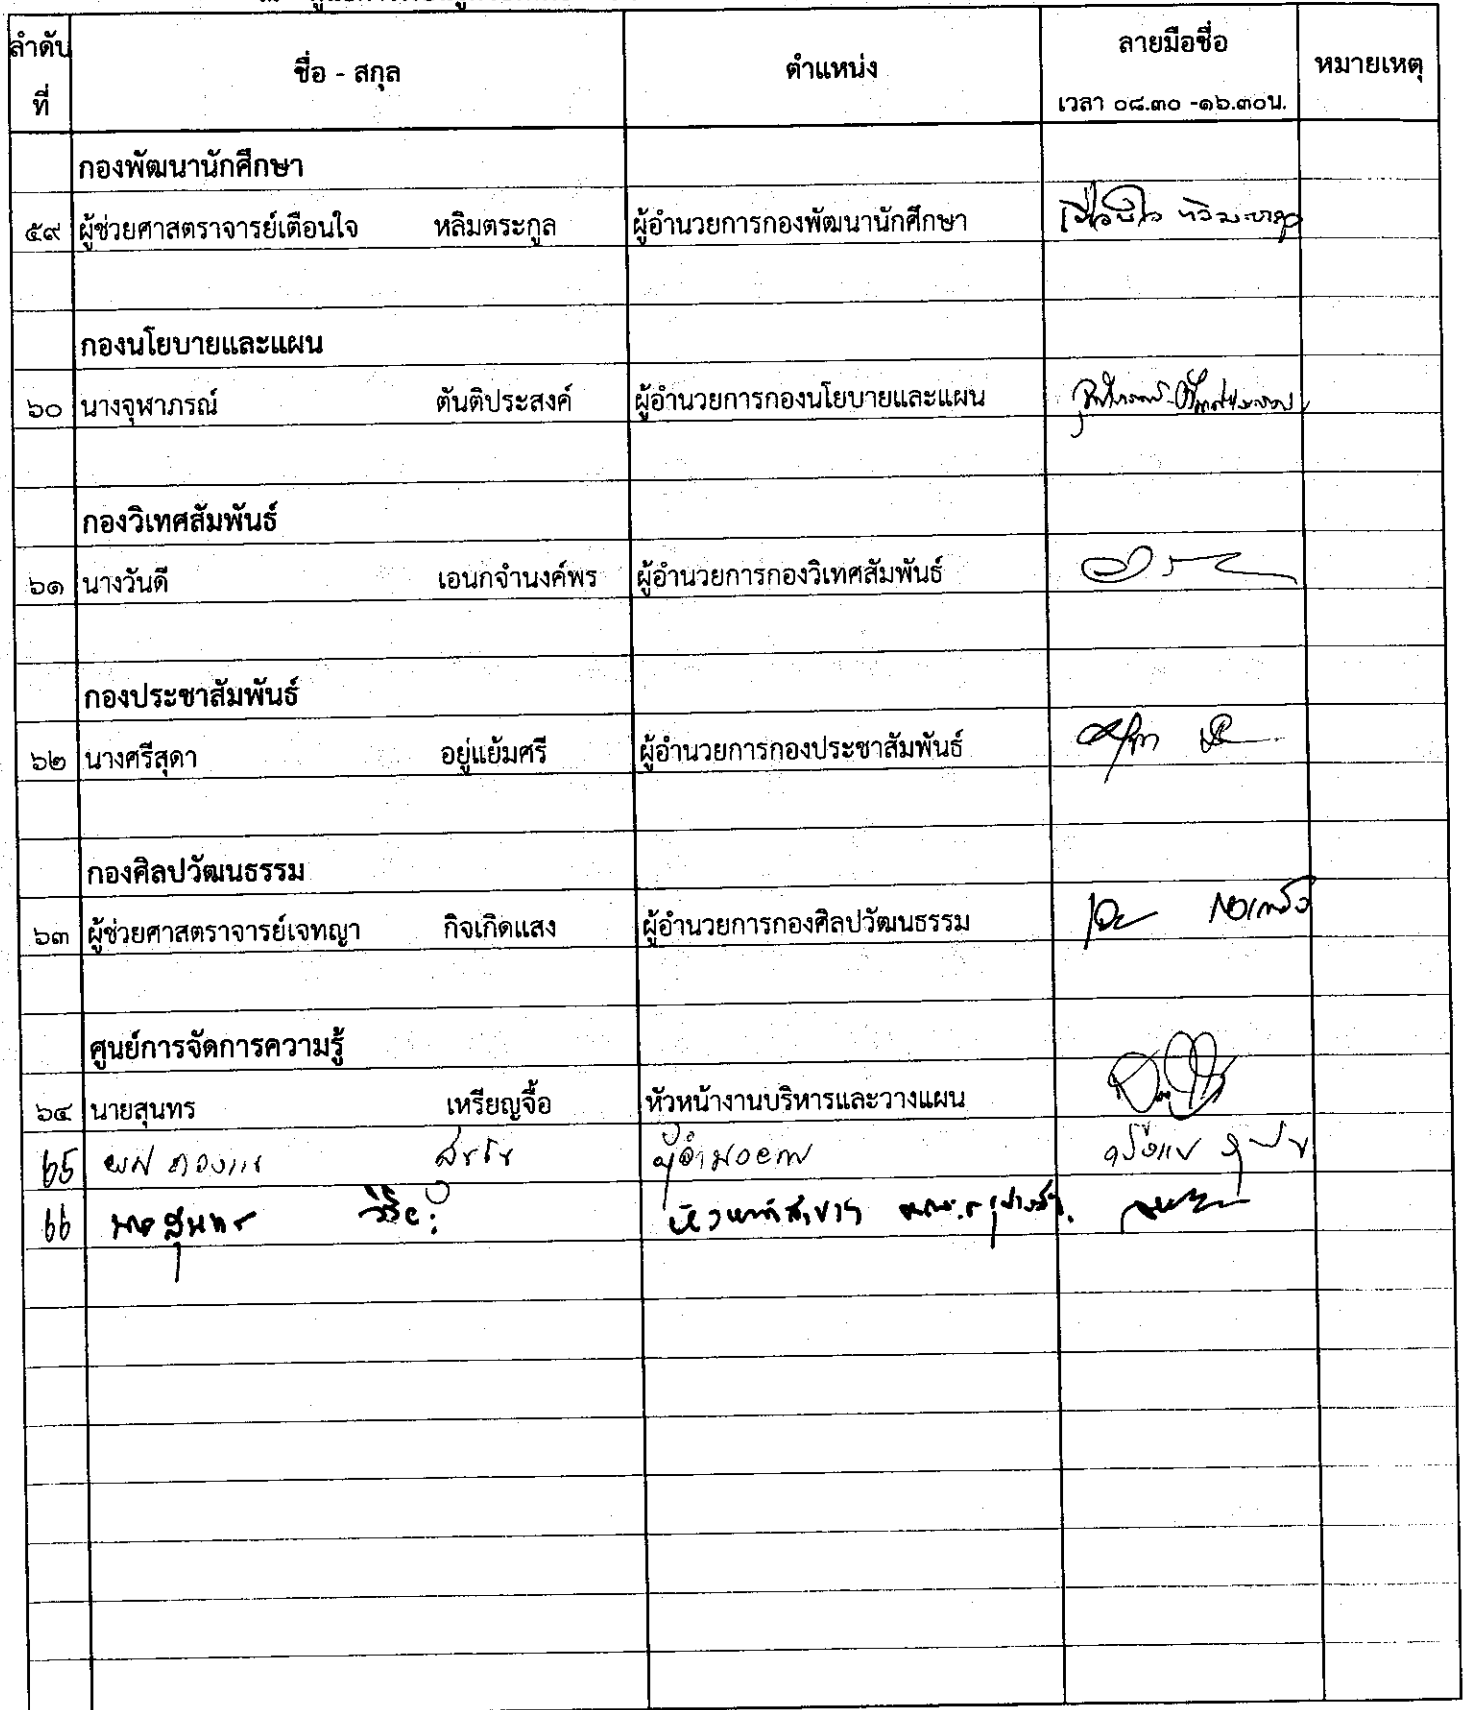 ลำดับ
ที่
ชื่อ - สกุล
ตำแหน่ง
ลายมือชื่อ
เวลา ๐๘.๓๐ -๑๖.๓๐น.
หมายเหตุ
กองพัฒนานักศึกษา
๕๙ ผู้ช่วยศาสตราจารย์เตือนใจ หลิมตระกูล ผู้อำนวยการกองพัฒนานักศึกษา
กองนโยบายและแผน
๖๐ นางจุฬาภรณ์ ตันติประสงค์ ผู้อำนวยการกองนโยบายและแผน
กองวิเทศสัมพันธ์
๖๑ นางวันดี เอนกจำนงค์พร ผู้อำนวยการกองวิเทศสัมพันธ์
กองประชาสัมพันธ์
๖๒ นางศรีสุดา อยู่แย้มศรี ผู้อำนวยการกองประชาสัมพันธ์
กองศิลปวัฒนธรรม
๖๓ ผู้ช่วยศาสตราจารย์เจทญา กิจเกิดแสง ผู้อำนวยการกองศิลปวัฒนธรรม
ศูนย์การจัดการความรู้
๖๔ นายสุนทร เหรียญจื้อ หัวหน้างานบริหารและวางแผน
65
66